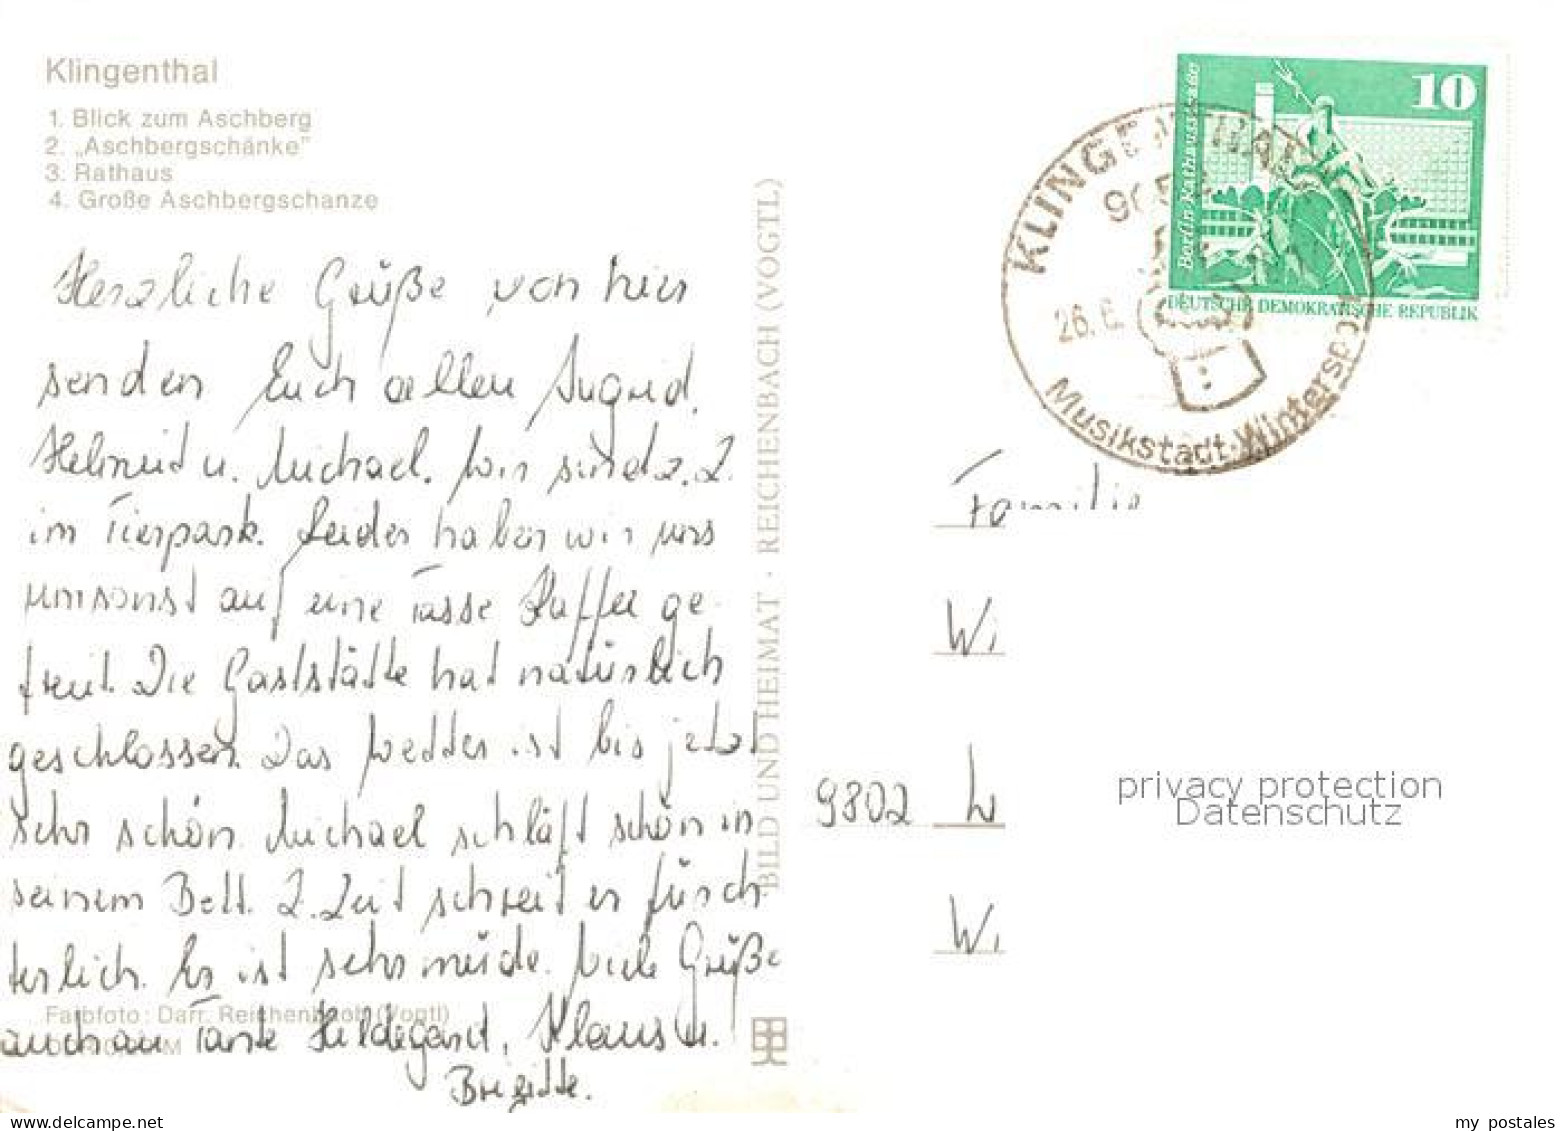 Klingenthal
1. Blick zum Aschberg
2. „Aschbergschänke”
3. Rathaus
4. Große Aschbergschanze
Herzliche Grüße von hier
senden Euch allen Ingrid,
Helmut u. Michael. Wir sind z. Z.
im Tierpark. Leider haben wir uns
umsonst auf eine Tasse Kaffee ge-
freut. Die Gaststätte hat natürlich
geschlossen. Das Wetter ist bis jetzt
sehr schön. Michael schläft schön in
seinem Bett. Z. Zeit schreit er fürch-
terlich. Er ist sehr müde. Viele Grüße
auch an Tante Hildegard, Klaus u.
Brigitte.
Farbfoto: Darr, Reichenbach (Vogtl)
BILD UND HEIMAT · REICHENBACH (VOGTL)
10
Berlin, Rathausstraße
DEUTSCHE DEMOKRATISCHE REPUBLIK
KLINGENTHAL
26. 6.
Musikstadt · Wintersport
Familie
Wi
9802
Wi
privacy protection
Datenschutz
www.delcampe.net
my_postales